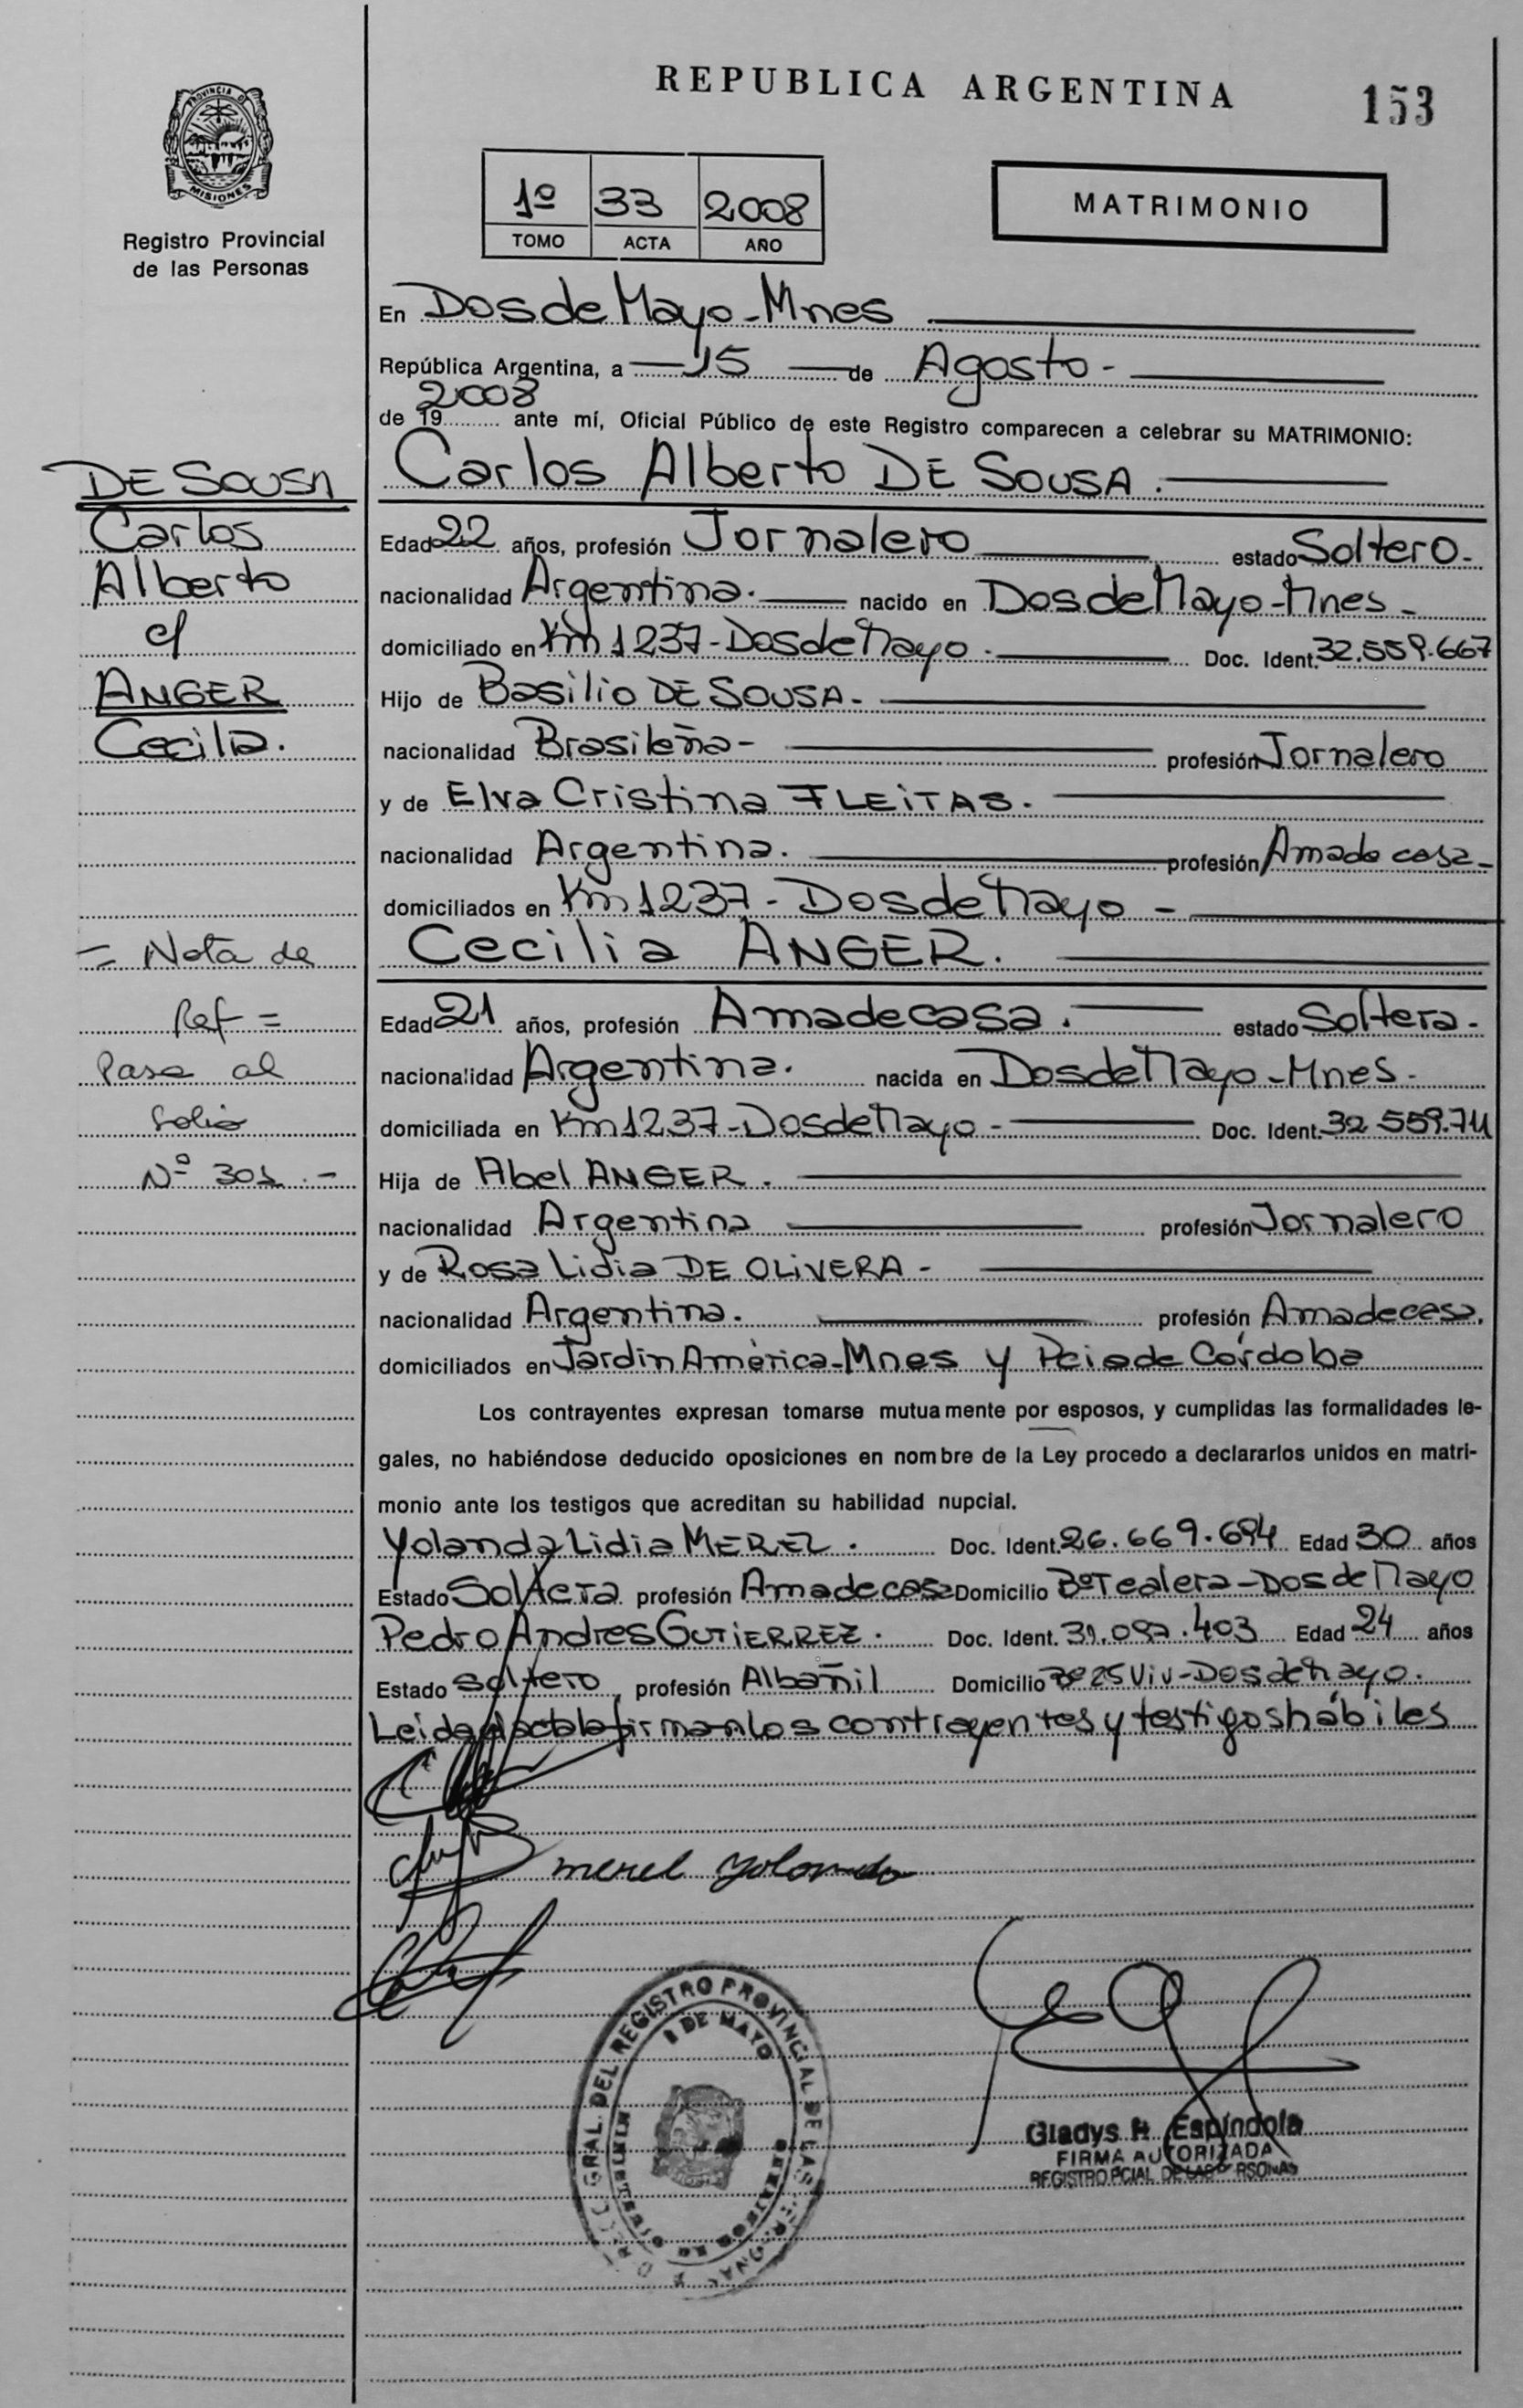 REPUBLICA ARGENTINA
153
PROVINCIA DE
MISIONES
Registro Provincial
de las Personas
1º 33 2008
TOMO ACTA AÑO
MATRIMONIO
En Dos de Mayo - Mnes
República Argentina, a 15 de Agosto -
2008
de 19 ante mí, Oficial Público de este Registro comparecen a celebrar su MATRIMONIO:
Carlos Alberto DE SOUSA.
Edad 22 años, profesión Jornalero estado Soltero -
nacionalidad Argentina. nacido en Dos de Mayo - Mnes -
domiciliado en Km 1237 - Dos de Mayo - Doc. Ident. 32.559.667
Hijo de Basilio DE SOUSA -
nacionalidad Brasileña - profesión Jornalero
y de Elva Cristina FLEITAS.
nacionalidad Argentina. profesión Ama de casa -
domiciliados en Km 1237 - Dos de Mayo -
Cecilia ANGER.
Edad 21 años, profesión Ama de casa. estado Soltera -
nacionalidad Argentina. nacida en Dos de Mayo - Mnes -
domiciliada en Km 1237 - Dos de Mayo - Doc. Ident. 32.559.711
Hija de Abel ANGER.
nacionalidad Argentina profesión Jornalero
y de Rosa Lidia DE OLIVERA -
nacionalidad Argentina. profesión Ama de casa.
domiciliados en Jardín América - Mnes y Pcia de Córdoba
Los contrayentes expresan tomarse mutuamente por esposos, y cumplidas las formalidades le-
gales, no habiéndose deducido oposiciones en nombre de la Ley procedo a declararlos unidos en matri-
monio ante los testigos que acreditan su habilidad nupcial.
Yolanda Lidia MEREL. Doc. Ident. 26.669.694 Edad 30 años
Estado Soltera profesión Ama de casa Domicilio Bº Tealera - Dos de Mayo
Pedro Andres GUTIERREZ. Doc. Ident. 31.097.403 Edad 24 años
Estado Soltero, profesión Albañil Domicilio Bº 25 Viv - Dos de Mayo.
Leida el acta la firman los contrayentes y testigos hábiles
merel yolanda
DE SOUSA
Carlos
Alberto
c/
ANGER
Cecilia.
= Nota de
Ref =
Pasa al
folio
Nº 301 . -
GRAL. DEL REGISTRO PROVINCIAL DE LAS
DE MAYO
Gladys H. Espíndola
FIRMA AUTORIZADA
REGISTRO PCIAL DE LAS PERSONAS